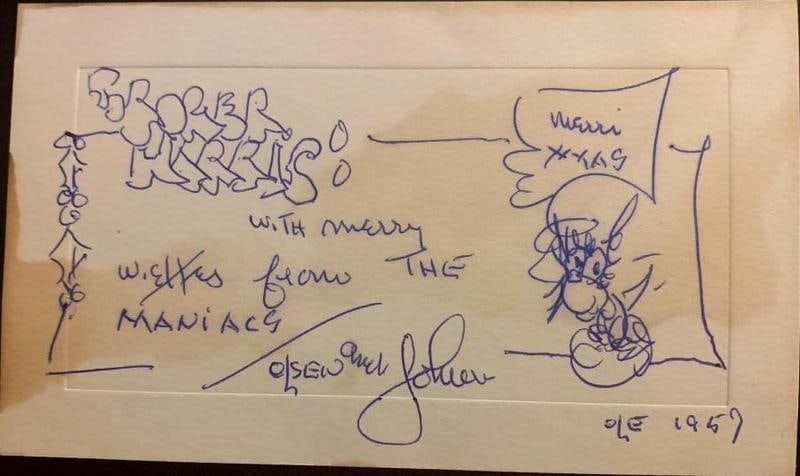 merri
XMAS
WiTH merry
wishes from THE
MANiACS
olsEN and Johnson
olE 1957